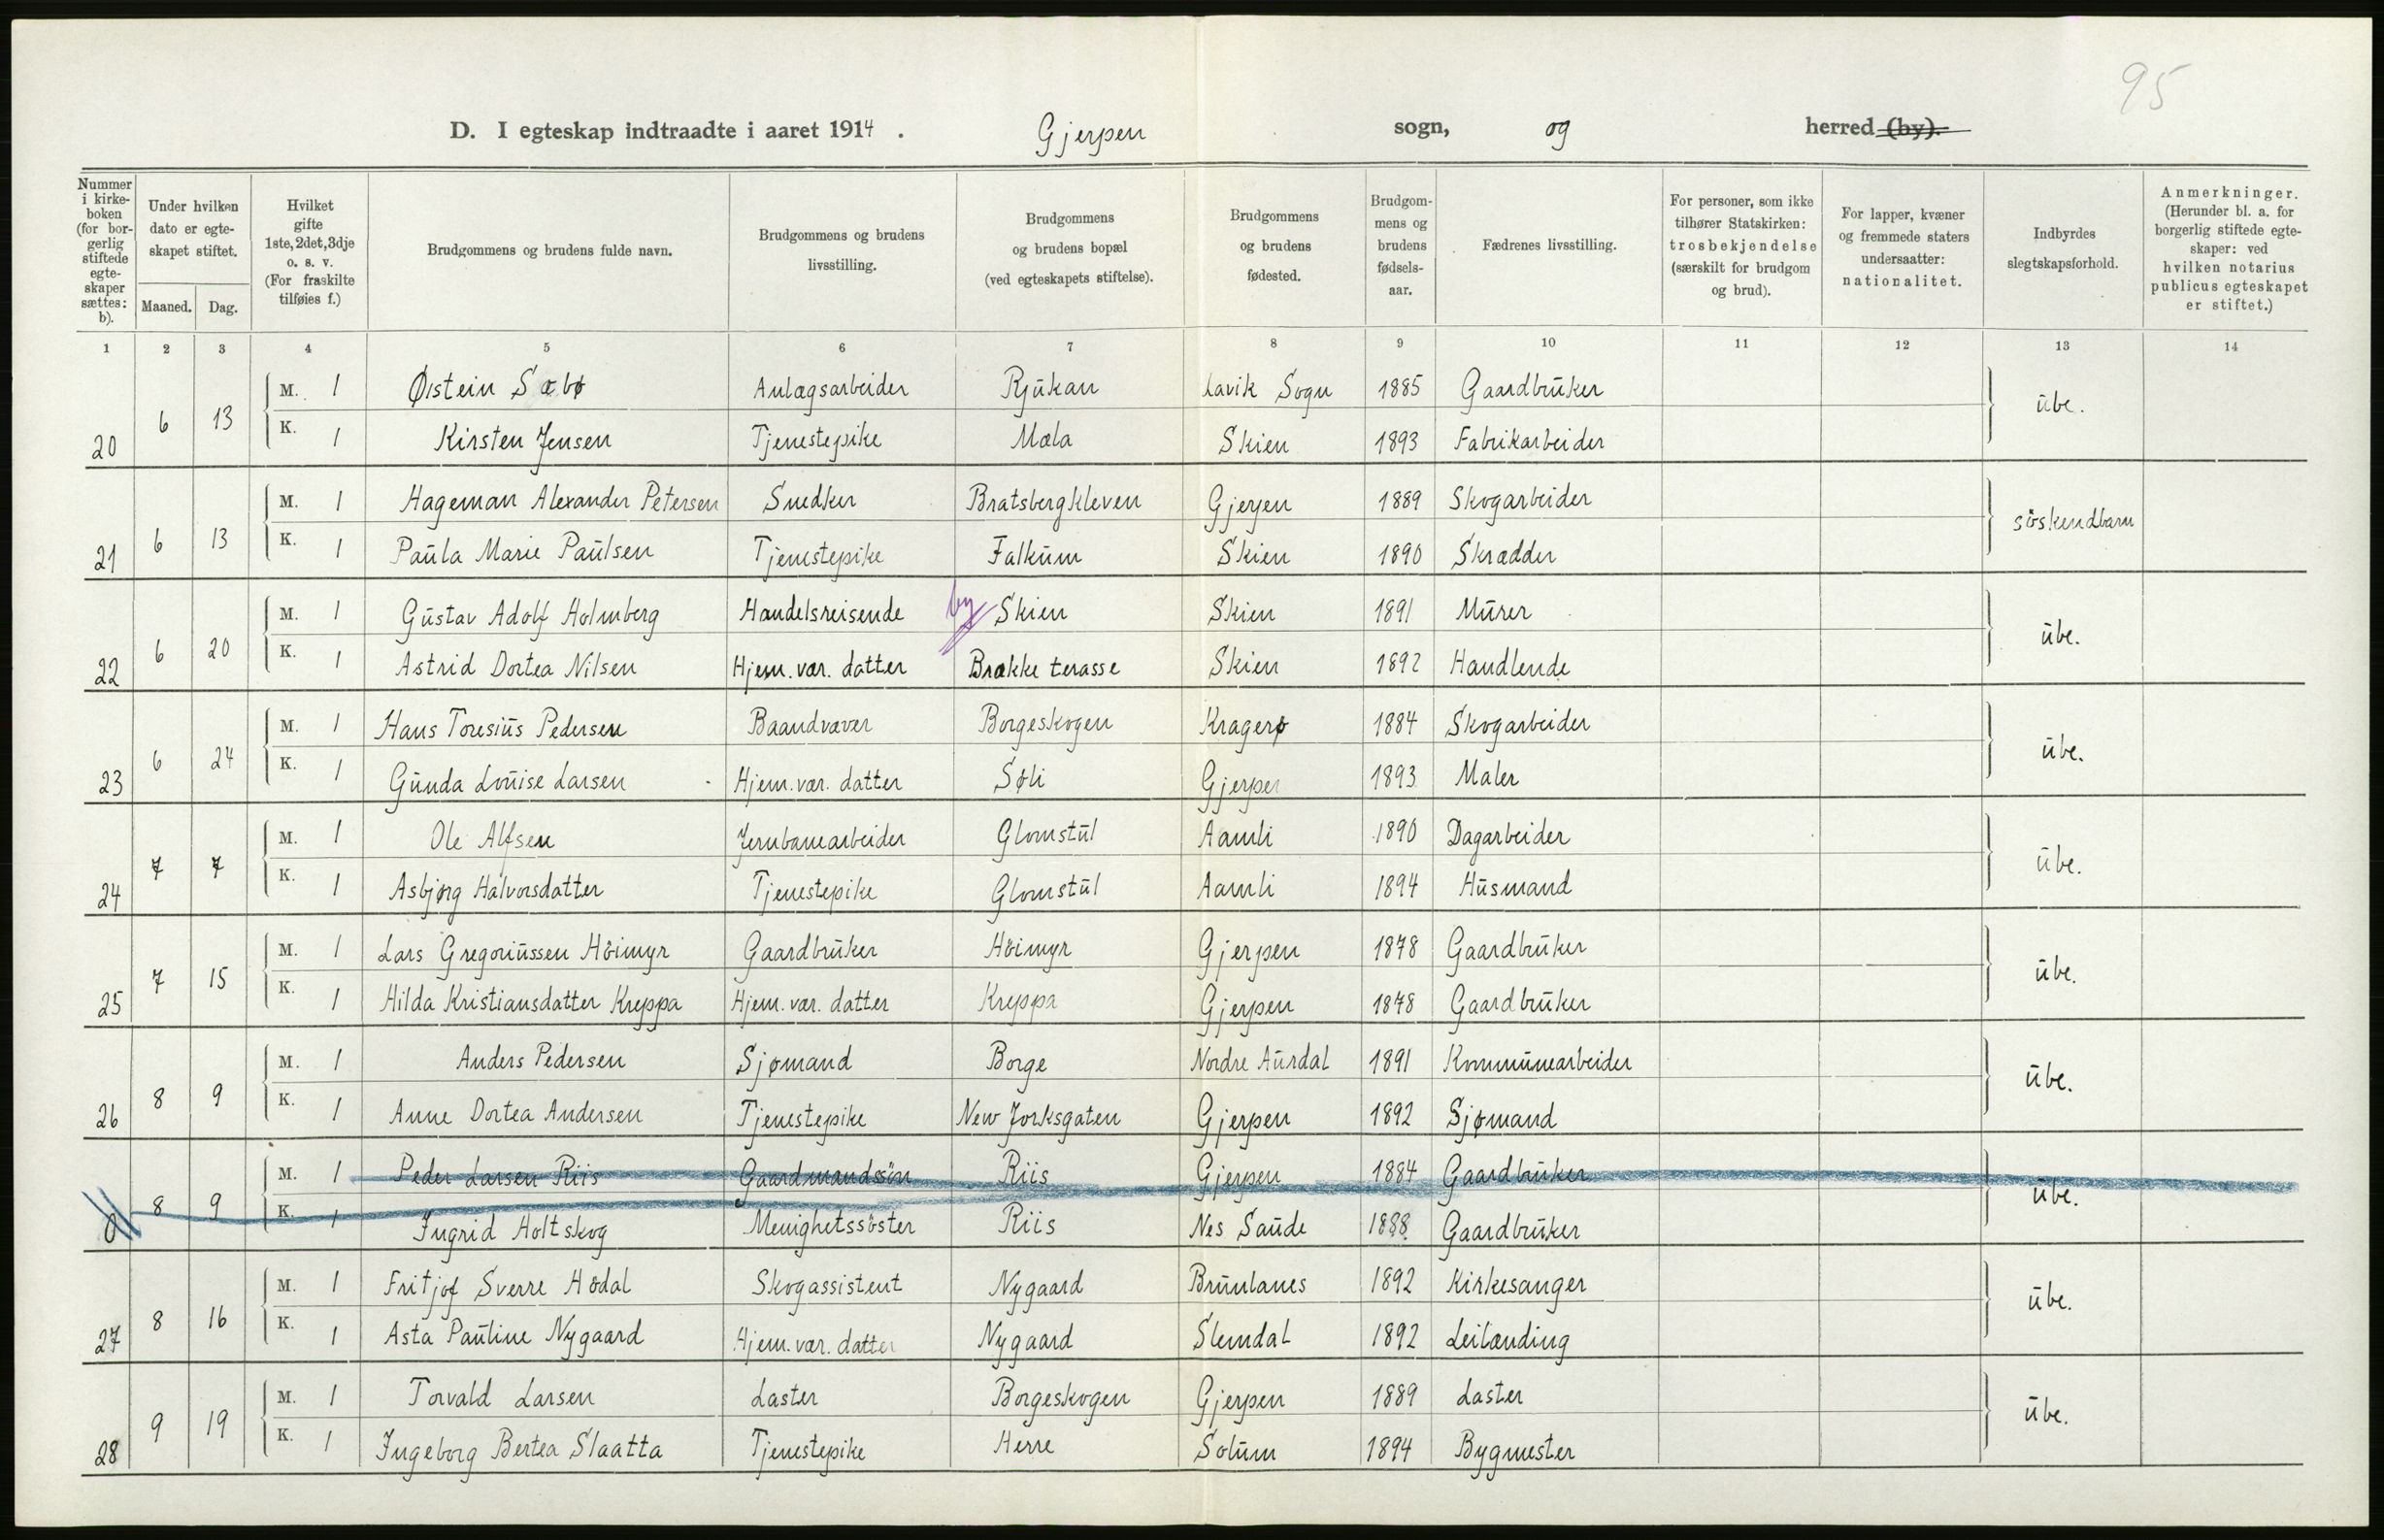 95
D. I egteskap indtraadte i aaret 1914. Gjerpen sogn, og herred (by).
Nummer i kirkeboken (for borgerlig stiftede egteskaper sættes: b).
Under hvilken dato er egteskapet stiftet.
Maaned. Dag.
Hvilket gifte 1ste, 2det, 3dje o. s. v. (For fraskilte tilføies f.)
Brudgommens og brudens fulde navn.
Brudgommens og brudens livsstilling.
Brudgommens og brudens bopæl (ved egteskapets stiftelse).
Brudgommens og brudens fødested.
Brudgommens og brudens fødselsaar.
Fædrenes livsstilling.
For personer, som ikke tilhører Statskirken: trosbekjendelse (særskilt for brudgom og brud).
For lapper, kvæner og fremmede staters undersaatter: nationalitet.
Indbyrdes slegtskapsforhold.
Anmerkninger. (Herunder bl. a. for borgerlig stiftede egteskaper: ved hvilken notarius publicus egteskapet er stiftet.)
1 2 3 4 5 6 7 8 9 10 11 12 13 14
M. 1 Øistein Sæbø Anlægsarbeider Rjukan Lavik Sogn 1885 Gaardbruker
20 6 13 ube.
K. 1 Kirsten Jensen Tjenestepike Mæla Skien 1893 Fabrikarbeider
M. 1 Hageman Alexander Petersen Snedker Bratsbergkleven Gjerpen 1889 Skogarbeider
21 6 13 söskendbarn
K. 1 Paula Marie Paulsen Tjenestepike Falkum Skien 1890 Skrædder
M. 1 Gustav Adolf Holmberg Handelsreisende by Skien Skien 1891 Murer
22 6 20 ube.
K. 1 Astrid Dortea Nilsen Hjem. vær. datter Brække terasse Skien 1892 Handlende
M. 1 Hans Toresius Pedersen Baandvæver Borgeskogen Kragerø 1884 Skogarbeider
23 6 24 ube.
K. 1 Gunda Louise Larsen Hjem. vær. datter Søli Gjerpen 1893 Maler
M. 1 Ole Alfsen Jernbanearbeider Glomstul Aamli 1890 Dagarbeider
24 7 7 ube.
K. 1 Asbjørg Halvorsdatter Tjenestepike Glomstul Aamli 1894 Husmand
M. 1 Lars Gregoriussen Höimyr Gaardbruker Höimyr Gjerpen 1878 Gaardbruker
25 7 15 ube.
K. 1 Hilda Kristiansdatter Kreppa Hjem. vær. datter Kreppa Gjerpen 1878 Gaardbruker
M. 1 Anders Pedersen Sjømand Borge Nordre Aurdal 1891 Kommunearbeider
26 8 9 ube.
K. 1 Anne Dortea Andersen Tjenestepike New Jorksgaten Gjerpen 1892 Sjømand
M. 1 Peder Larsen Riis Gaardmandssön Riis Gjerpen 1884 Gaardbruker
0 8 9 ube.
K. 1 Ingrid Holtskog Menighetssöster Riis Nes Saude 1888 Gaardbruker
M. 1 Fritjof Sverre Hödal Skogassistent Nygaard Brunlanes 1892 Kirkesanger
27 8 16 ube.
K. 1 Asta Pauline Nygaard Hjem. vær. datter Nygaard Slemdal 1892 Leilænding
M. 1 Torvald Larsen Laster Borgeskogen Gjerpen 1889 Laster
28 9 19 ube.
K. 1 Ingeborg Bertea Slaatta Tjenestepike Herre Solum 1894 Bygmester